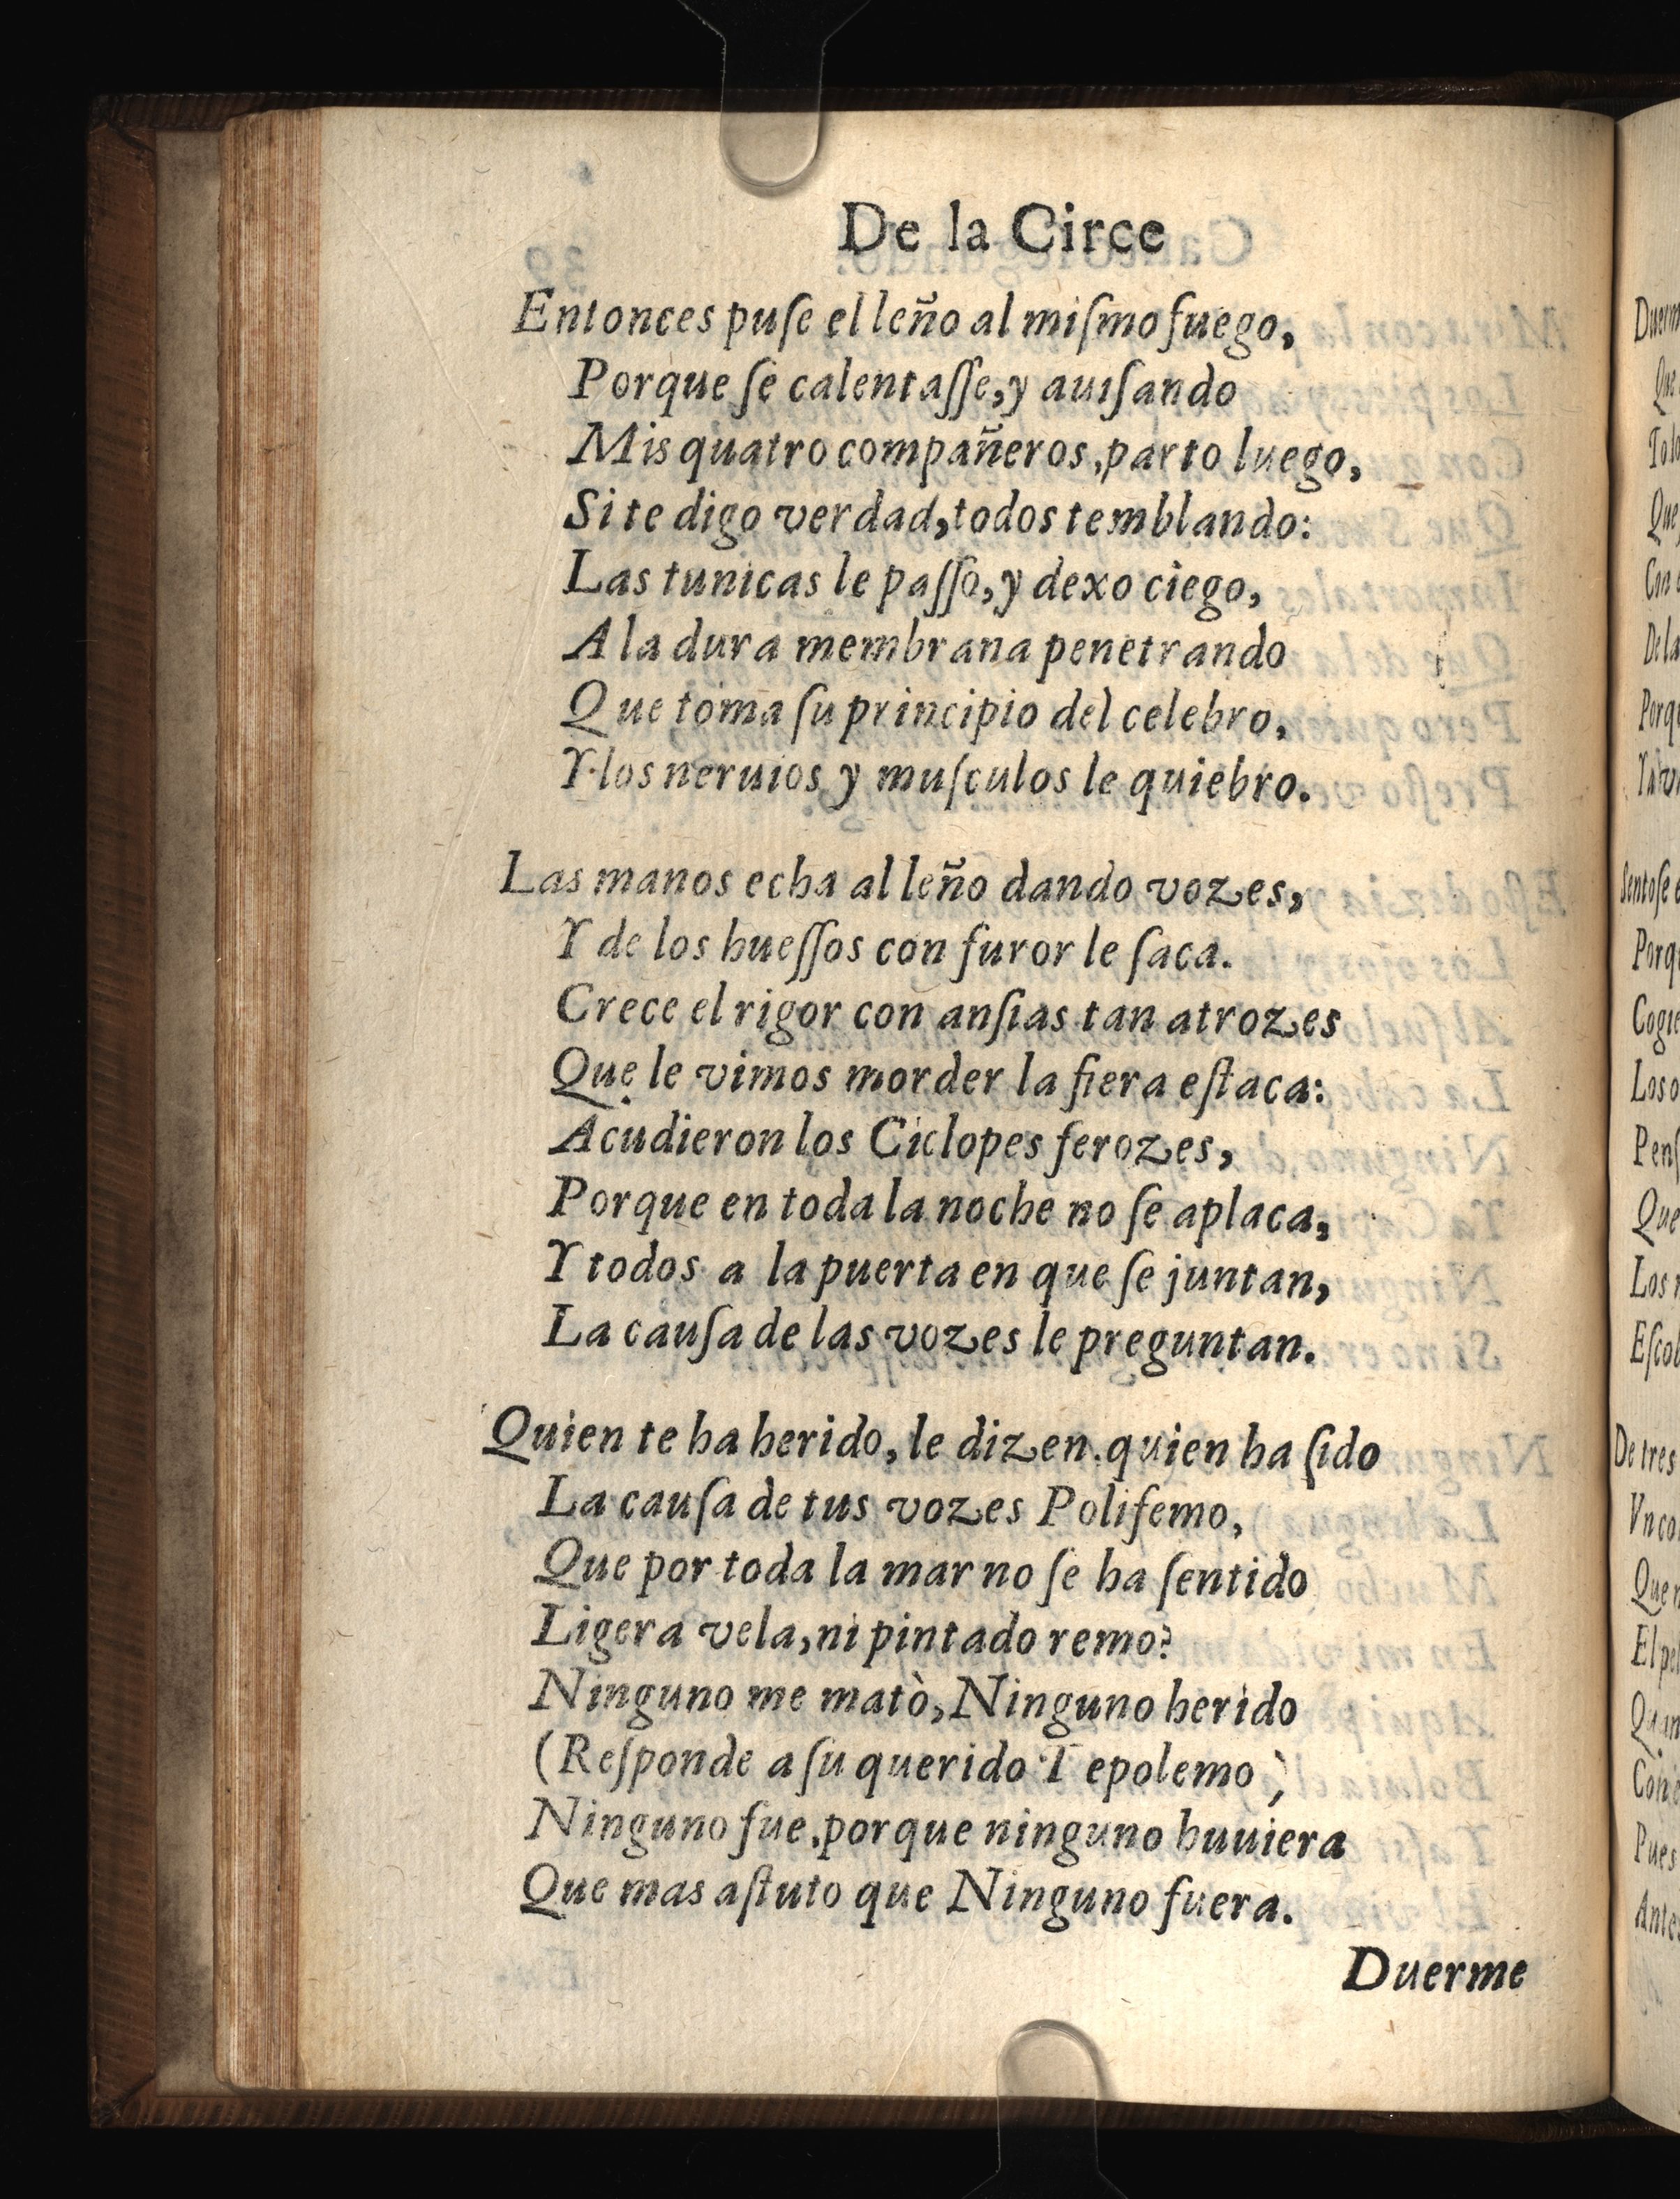 De la Circe
Entonces puſe el leño al miſmo fuego,
Porque ſe calentaſſe, y auiſando
Mis quatro compañeros, parto luego,
Si te digo verdad, todos temblando:
Las tunicas le paſſo, y dexo ciego,
A la dura membrana penetrando
Que toma ſu principio del celebro,
Y los neruios y muſculos le quiebro.
Las manos echa al leño dando vozes,
Y de los hueſſos con furor le ſaca.
Crece el rigor con anſias tan atrozes
Que le vimos morder la fiera eſtaca:
Acudieron los Ciclopes ferozes,
Porque en toda la noche no ſe aplaca,
Y todos a la puerta en que ſe juntan,
La cauſa de las vozes le preguntan.
Quien te ha herido, le dizen. quien ha ſido
La cauſa de tus vozes Polifemo,
Que por toda la mar no ſe ha ſentido
Ligera vela, ni pintado remo?
Ninguno me matò, Ninguno herido
(Reſponde a ſu querido Tepolemo)
Ninguno fue, porque ninguno huuiera
Que mas aſtuto que Ninguno fuera.
Duerme